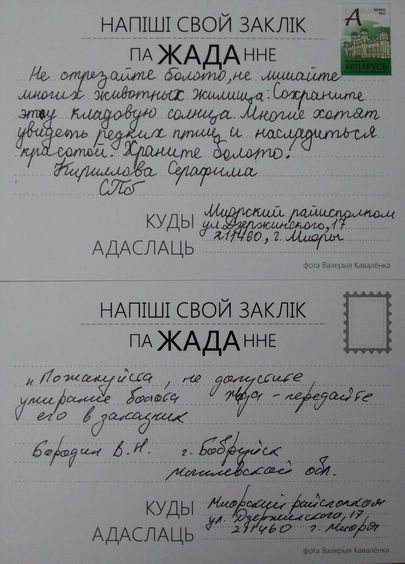 НАПІШІ СВОЙ ЗАКЛІК
ПА ЖАДА ННЕ
А
БЕЛАРУСЬ
Не отрезайте болото, не лишайте
многих животных жилища. Сохраните
эту кладовую солнца. Многие хотят
увидеть редких птиц и насладиться
красотой. Храните болото!
Кириллова Серафима
СПб
КУДЫ
Миорский райисполком
АДАСЛАЦЬ
ул. Дзержинского, 17
211460, г. Миоры
фота Валерыя Каваленка
НАПІШІ СВОЙ ЗАКЛІК
ПА ЖАДА ННЕ
"Пожалуйста, не допустите
умирание болота Жада - передайте
его в заказник
Бородин В.Н. г. Бобруйск
Могилевской обл.
КУДЫ
Миорский райисполком
АДАСЛАЦЬ
ул. Дзержинского, 17
211460 г. Миоры
фота Валерыя Каваленка